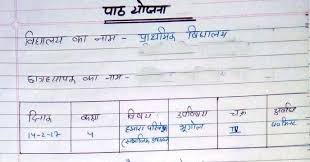 पाठ योजना
विद्यालय का नाम - प्राथमिक विद्यालय
छात्राध्यापक का नाम -
दिनांक कक्षा विषय उपविषय चक्र अवधि
14-2-17 4 हमारा परिवेश भूगोल IV ४० मिनट